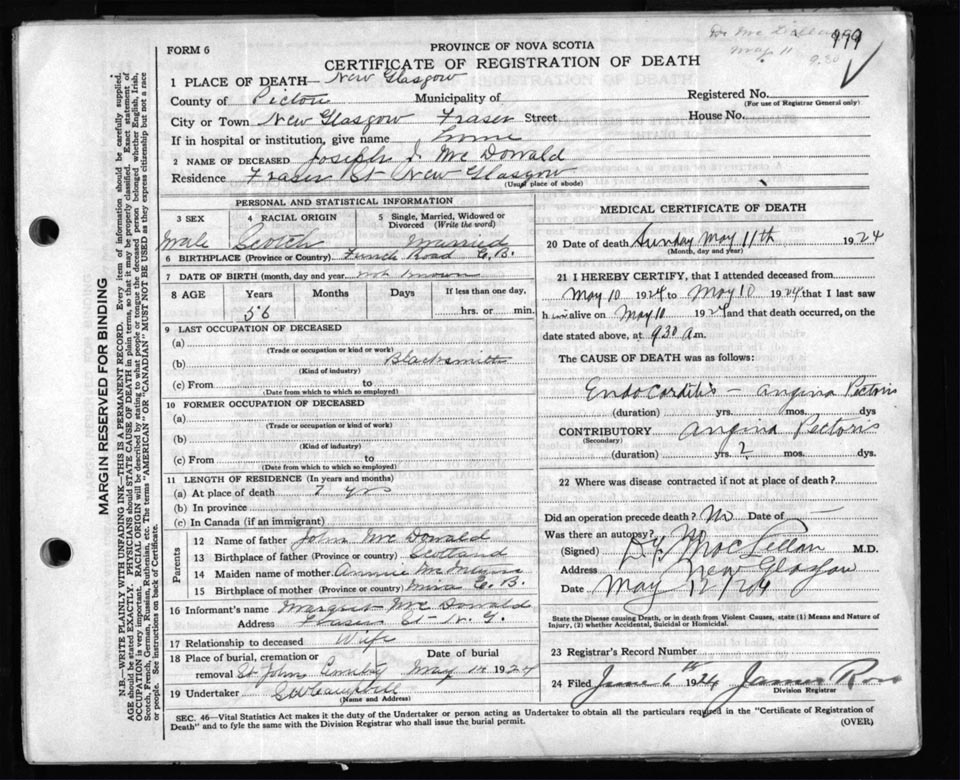 999
May 11
9.30
FORM 6
PROVINCE OF NOVA SCOTIA
CERTIFICATE OF REGISTRATION OF DEATH
1 PLACE OF DEATH— New Glasgow
County of Pictou Municipality of
Registered No.
(For use of Registrar General only)
City or Town New Glasgow Fraser Street House No.
If in hospital or institution, give name home
2 NAME OF DECEASED Joseph J. Mc Donald
Residence Fraser St New Glasgow
(Usual place of abode)
PERSONAL AND STATISTICAL INFORMATION
3 SEX
4 RACIAL ORIGIN
5 Single, Married, Widowed or Divorced (Write the word)
Male Scotch Married
6 BIRTHPLACE (Province or Country) French Road C.B.
7 DATE OF BIRTH (month, day and year not known
8 AGE Years Months Days If less than one day,
56 hrs. or min.
9 LAST OCCUPATION OF DECEASED
(a)
(Trade or occupation or kind or work)
(b) Blacksmith
(Kind of industry)
(c) From to
(Date from which to which so employed)
10 FORMER OCCUPATION OF DECEASED
(a)
(Trade or occupation or kind of work)
(b)
(Kind of industry)
(c) From to
(Date from which to which so employed)
11 LENGTH OF RESIDENCE (In years and months)
(a) At place of death 7 yrs
(b) In province
(c) In Canada (if an immigrant)
Parents
12 Name of father John Mc Donald
13 Birthplace of father (Province or country) Scotland
14 Maiden name of mother Annie
15 Birthplace of mother (Province or country) Mira C.B.
16 Informant's name Mc Donald
Address Fraser St N. G.
17 Relationship to deceased Wife
18 Place of burial, cremation or removal St Johns Date of burial May 14 1924
19 Undertaker Campbell
(Name and Address)
MEDICAL CERTIFICATE OF DEATH
20 Date of death Sunday May 11th 1924
(Month, day and year)
21 I HEREBY CERTIFY, that I attended deceased from
May 10 1924 to May 10 1924 that I last saw
him alive on May 10 1924 and that death occurred, on
date stated above, at 9.30 a.m.
The CAUSE OF DEATH was as follows:
Endocarditis - Angina Pectoris
(duration) yrs. mos. dys
CONTRIBUTORY Angina Pectoris
(Secondary)
(duration) yrs. 2 mos. dys.
22 Where was disease contracted if not at place of death?
Did an operation precede death? No Date of
Was there an autopsy? No
(Signed) M.D.
Address New Glasgow
Date May 12/24
State the Disease causing Death, or in death from Violent Causes, state (1) Means and Nature of Injury, (2) whether Accidental, Suicidal or Homicidal.
23 Registrar's Record Number
24 Filed June 6th 1924 James Ross
Division Registrar
SEC. 46—Vital Statistics Act makes it the duty of the Undertaker or person acting as Undertaker to obtain all the particulars required in the "Certificate of Registration of
Death" and to fyle the same with the Division Registrar who shall issue the burial permit.
(OVER)
MARGIN RESERVED FOR BINDING
N.B.—WRITE PLAINLY WITH UNFADING INK—THIS IS A PERMANENT RECORD. Every item of information should be carefully supplied.
AGE should be stated EXACTLY. PHYSICIANS should STATE CAUSE OF DEATH in plain terms, so that it may be properly classified. Exact statement of
OCCUPATION is very important. RACIAL ORIGIN will be described by stating to what people or tongue the deceased person belonged whether English, Irish,
Scotch, French, German, Russian, Ruthenian, etc. The terms "AMERICAN" OR "CANADIAN" MUST NOT BE USED as they express citizenship but not a race
or people. See instructions on back of Certificate.